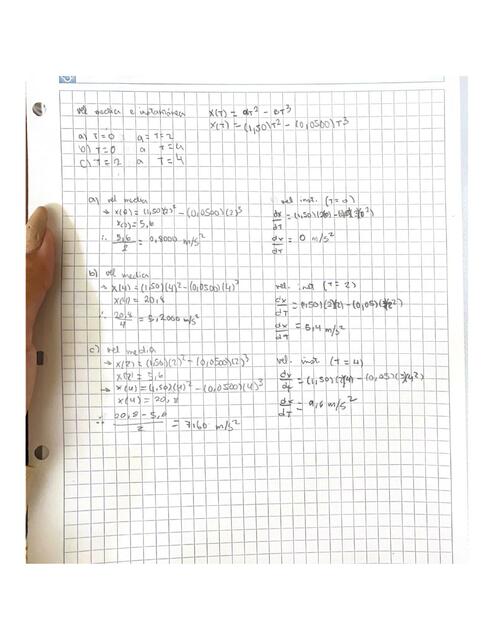 vel media e instantánea
x(T) = αT² - βT³
x(T) = (1,50)T² - (0,0500)T³
a) T = 0 a = T = 2
b) T = 0 a T = 4
c) T = 2 a T = 4
a) vel media
→ x(2) = (1,50)(2)² - (0,0500)(2)³
x(2) = 5,6
∴ 5,6/2 = m/s²
vel inst. (T = 0)
dx/dT = (1,50)
dx/dT = 0 m/s²
b) vel media
→ x(4) = (1,50)(4)² - (0,0500)(4)³
x(4) = 20,8
∴ 20,8/4 = 5,2000 m/s²
vel. inst (T = 2)
dx/dT = (1,50)(2)(2) - (0,05)
dx/dT = 5,4 m/s²
c) vel media
→ x(2) = (1,50)(2)² - (0,0500)(2)³
x(2) = 5,6
→ x(4) = (1,50)(4)² - (0,0500)(4)³
x(4) = 20,8
∴ 20,8 - 5,6/2 = 7,60 m/s²
vel. inst (T = 4)
dx/dT = (1,50) - (0,05)
dx/dT = 9,6 m/s²